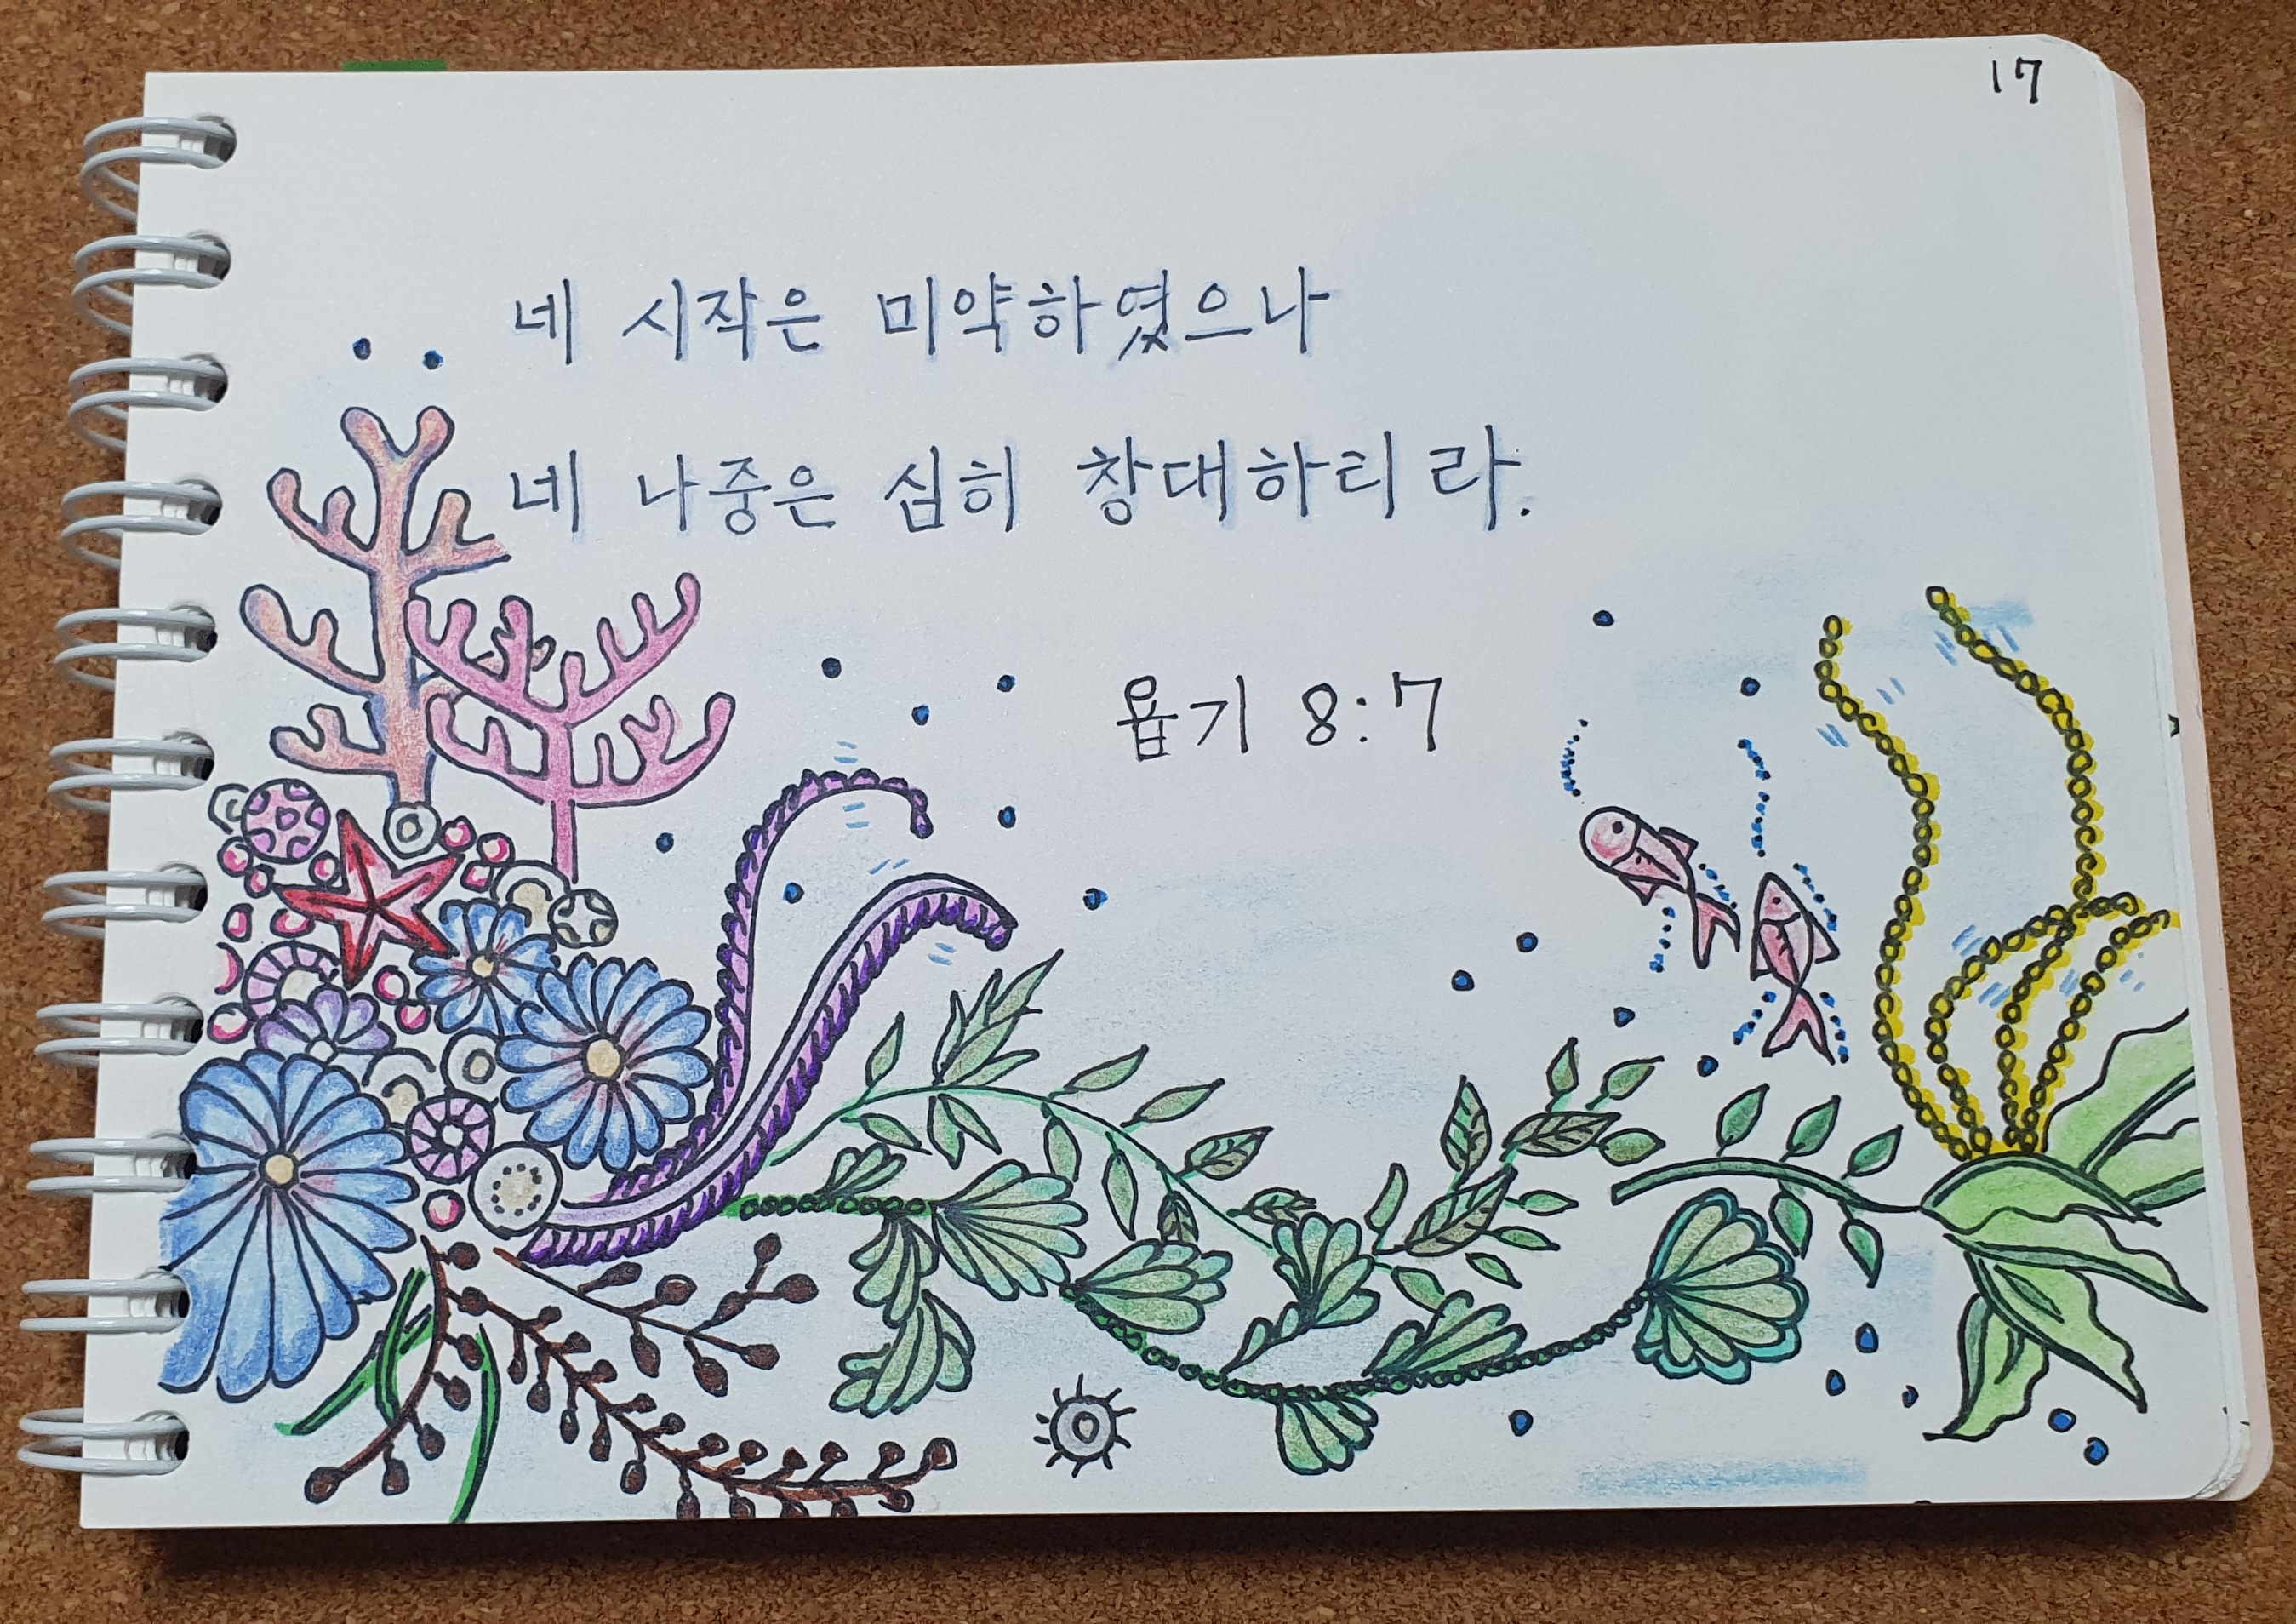 17
네 시작은 미약하였으나
네 나중은 심히 창대하리라.
욥기 8:7